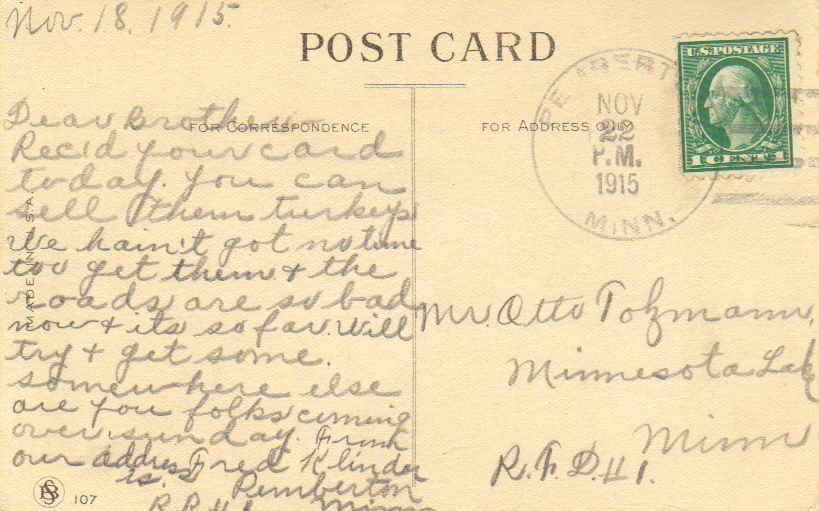 Nov. 18, 1915.
POST CARD
Dear Brother
FOR CORRESPONDENCE
Rec'd your card
today. You can
sell them turkeys
We hain't got no time
too get them & the
roads are so bad
now & its so far. Will
try & get some.
somewhere else
are you folks coming
over sunday. From
our address Fred Klinder
is. Pemberton
R.R#1. Minn
MADE IN U.S.A.
107
FOR ADDRESS ONLY
PEMBERTON
NOV
22
P.M.
1915
MINN.
U.S. POSTAGE
1 CENT 1
Mr. Otto Tolzmann,
Minnesota Lake
Minn
R.F.D.#1.